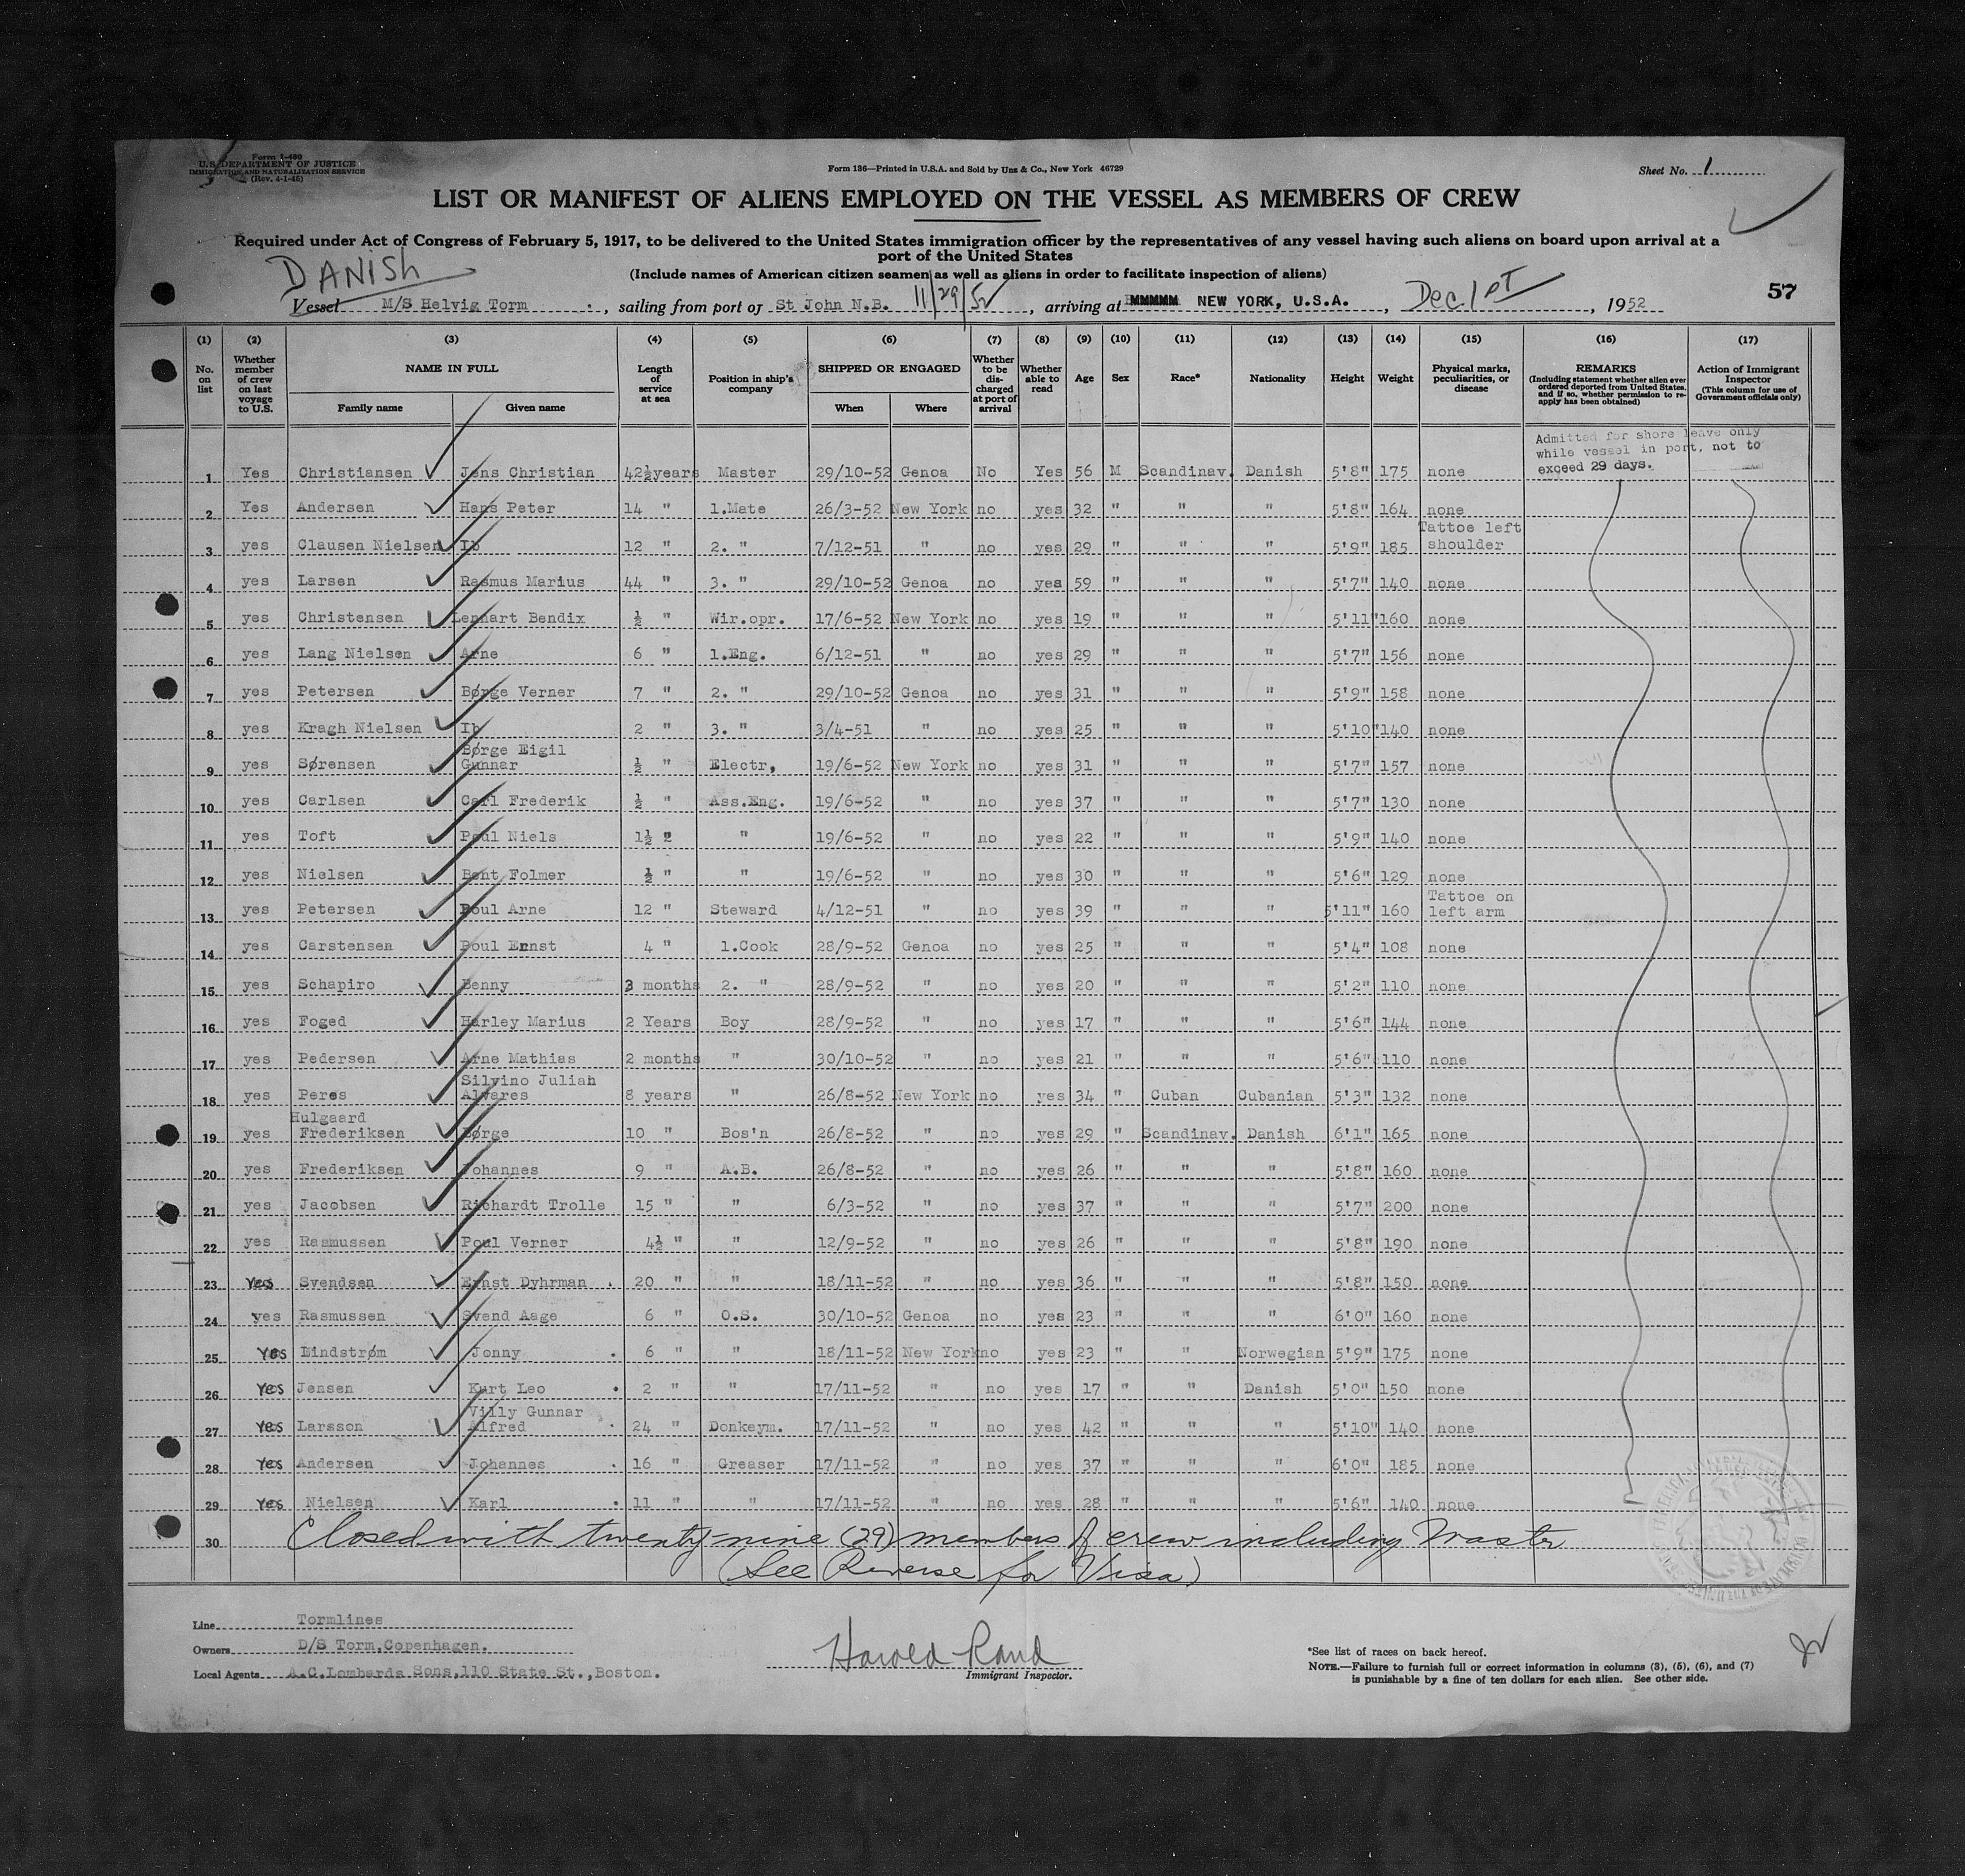 Form I-480
U.S. DEPARTMENT OF JUSTICE
IMMIGRATION AND NATURALIZATION SERVICE
(Rev. 4-1-45)
Form 136—Printed in U.S.A. and Sold by Unz & Co., New York 46729
Sheet No. 1
LIST OR MANIFEST OF ALIENS EMPLOYED ON THE VESSEL AS MEMBERS OF CREW
Required under Act of Congress of February 5, 1917, to be delivered to the United States immigration officer by the representatives of any vessel having such aliens on board upon arrival at a
port of the United States
DANISH
(Include names of American citizen seamen as well as aliens in order to facilitate inspection of aliens)
57
Vessel M/S Helvig Torm, sailing from port of St John N.B. 11/29/52, arriving at NEW YORK, U.S.A., Dec. 1st, 1952
(1) No. on list (2) Whether member of crew on last voyage to U.S. (3) NAME IN FULL Family name Given name (4) Length of service at sea (5) Position in ship's company (6) SHIPPED OR ENGAGED When Where (7) Whether to be discharged at port of arrival (8) Whether able to read (9) Age (10) Sex (11) Race* (12) Nationality (13) Height (14) Weight (15) Physical marks, peculiarities, or disease (16) REMARKS (Including statement whether alien ever ordered deported from United States, and if so, whether permission to re-apply has been obtained) (17) Action of Immigrant Inspector (This column for use of Government officials only)
Admitted for shore leave only
while vessel in port, not to
exceed 29 days.
1 Yes Christiansen Jens Christian 42½years Master 29/10-52 Genoa No Yes 56 M Scandinav. Danish 5'8" 175 none
2 Yes Andersen Hans Peter 14 " 1.Mate 26/3-52 New York no yes 32 " " " 5'8" 164 none
3 yes Clausen Nielsen Ib 12 " 2. " 7/12-51 " no yes 29 " " " 5'9" 185 Tattoe left shoulder
4 yes Larsen Rasmus Marius 44 " 3. " 29/10-52 Genoa no yes 59 " " " 5'7" 140 none
5 yes Christensen Lennart Bendix ½ " Wir.opr. 17/6-52 New York no yes 19 " " " 5'11" 160 none
6 yes Lang Nielsen Arne 6 " 1.Eng. 6/12-51 " no yes 29 " " " 5'7" 156 none
7 yes Petersen Børge Verner 7 " 2. " 29/10-52 Genoa no yes 31 " " " 5'9" 158 none
8 yes Kragh Nielsen Ib 2 " 3. " 3/4-51 " no yes 25 " " " 5'10" 140 none
9 yes Sørensen Børge Eigil Gunnar ½ " Electr, 19/6-52 New York no yes 31 " " " 5'7" 157 none
10 yes Carlsen Carl Frederik ½ " Ass.Eng. 19/6-52 " no yes 37 " " " 5'7" 130 none
11 yes Toft Poul Niels 1½ " " 19/6-52 " no yes 22 " " " 5'9" 140 none
12 yes Nielsen Bent Folmer ½ " " 19/6-52 " no yes 30 " " " 5'6" 129 none
13 yes Petersen Poul Arne 12 " Steward 4/12-51 " no yes 39 " " " 5'11" 160 Tattoe on left arm
14 yes Carstensen Poul Ernst 4 " 1.Cook 28/9-52 Genoa no yes 25 " " " 5'4" 108 none
15 yes Schapiro Benny 3 months 2. " 28/9-52 " no yes 20 " " " 5'2" 110 none
16 yes Foged Harley Marius 2 Years Boy 28/9-52 " no yes 17 " " " 5'6" 144 none
17 yes Pedersen Arne Mathias 2 months " 30/10-52 " no yes 21 " " " 5'6" 110 none
18 yes Peres Silvino Julian Alvares 8 years " 26/8-52 New York no yes 34 " Cuban Cubanian 5'3" 132 none
19 yes Hulgaard Frederiksen Børge 10 " Bos'n 26/8-52 " no yes 29 " Scandinav. Danish 6'1" 165 none
20 yes Frederiksen Johannes 9 " A.B. 26/8-52 " no yes 26 " " " 5'8" 160 none
21 yes Jacobsen Richardt Trolle 15 " " 6/3-52 " no yes 37 " " " 5'7" 200 none
22 yes Rasmussen Poul Verner 4½ " " 12/9-52 " no yes 26 " " " 5'8" 190 none
23 Yes Svendsen Ernst Dyhrman . 20 " " 18/11-52 " no yes 36 " " " 5'8" 150 none
24 yes Rasmussen Svend Aage 6 " O.S. 30/10-52 Genoa no yes 23 " " " 6'0" 160 none
25 Yes Lindstrøm Jonny . 6 " " 18/11-52 New York no yes 23 " " Norwegian 5'9" 175 none
26 Yes Jensen Kurt Leo . 2 " " 17/11-52 " no yes 17 " " Danish 5'0" 150 none
27 Yes Larsson Villy Gunnar Alfred . 24 " Donkeym. 17/11-52 " no yes 42 " " " 5'10" 140 none
28 Yes Andersen Johannes . 16 " Greaser 17/11-52 " no yes 37 " " " 6'0" 185 none
29 Yes Nielsen Karl . 11 " " 17/11-52 " no yes 28 " " " 5'6" 140 none
30 Closed with twenty-nine (29) members of crew including Master
(See Reverse for Visa)
Line Tormlines
Owners D/S Torm, Copenhagen.
Local Agents A.C.Lombards Sons, 110 State St., Boston.
Harold Rand
Immigrant Inspector.
*See list of races on back hereof.
NOTE.—Failure to furnish full or correct information in columns (3), (5), (6), and (7)
is punishable by a fine of ten dollars for each alien. See other side.